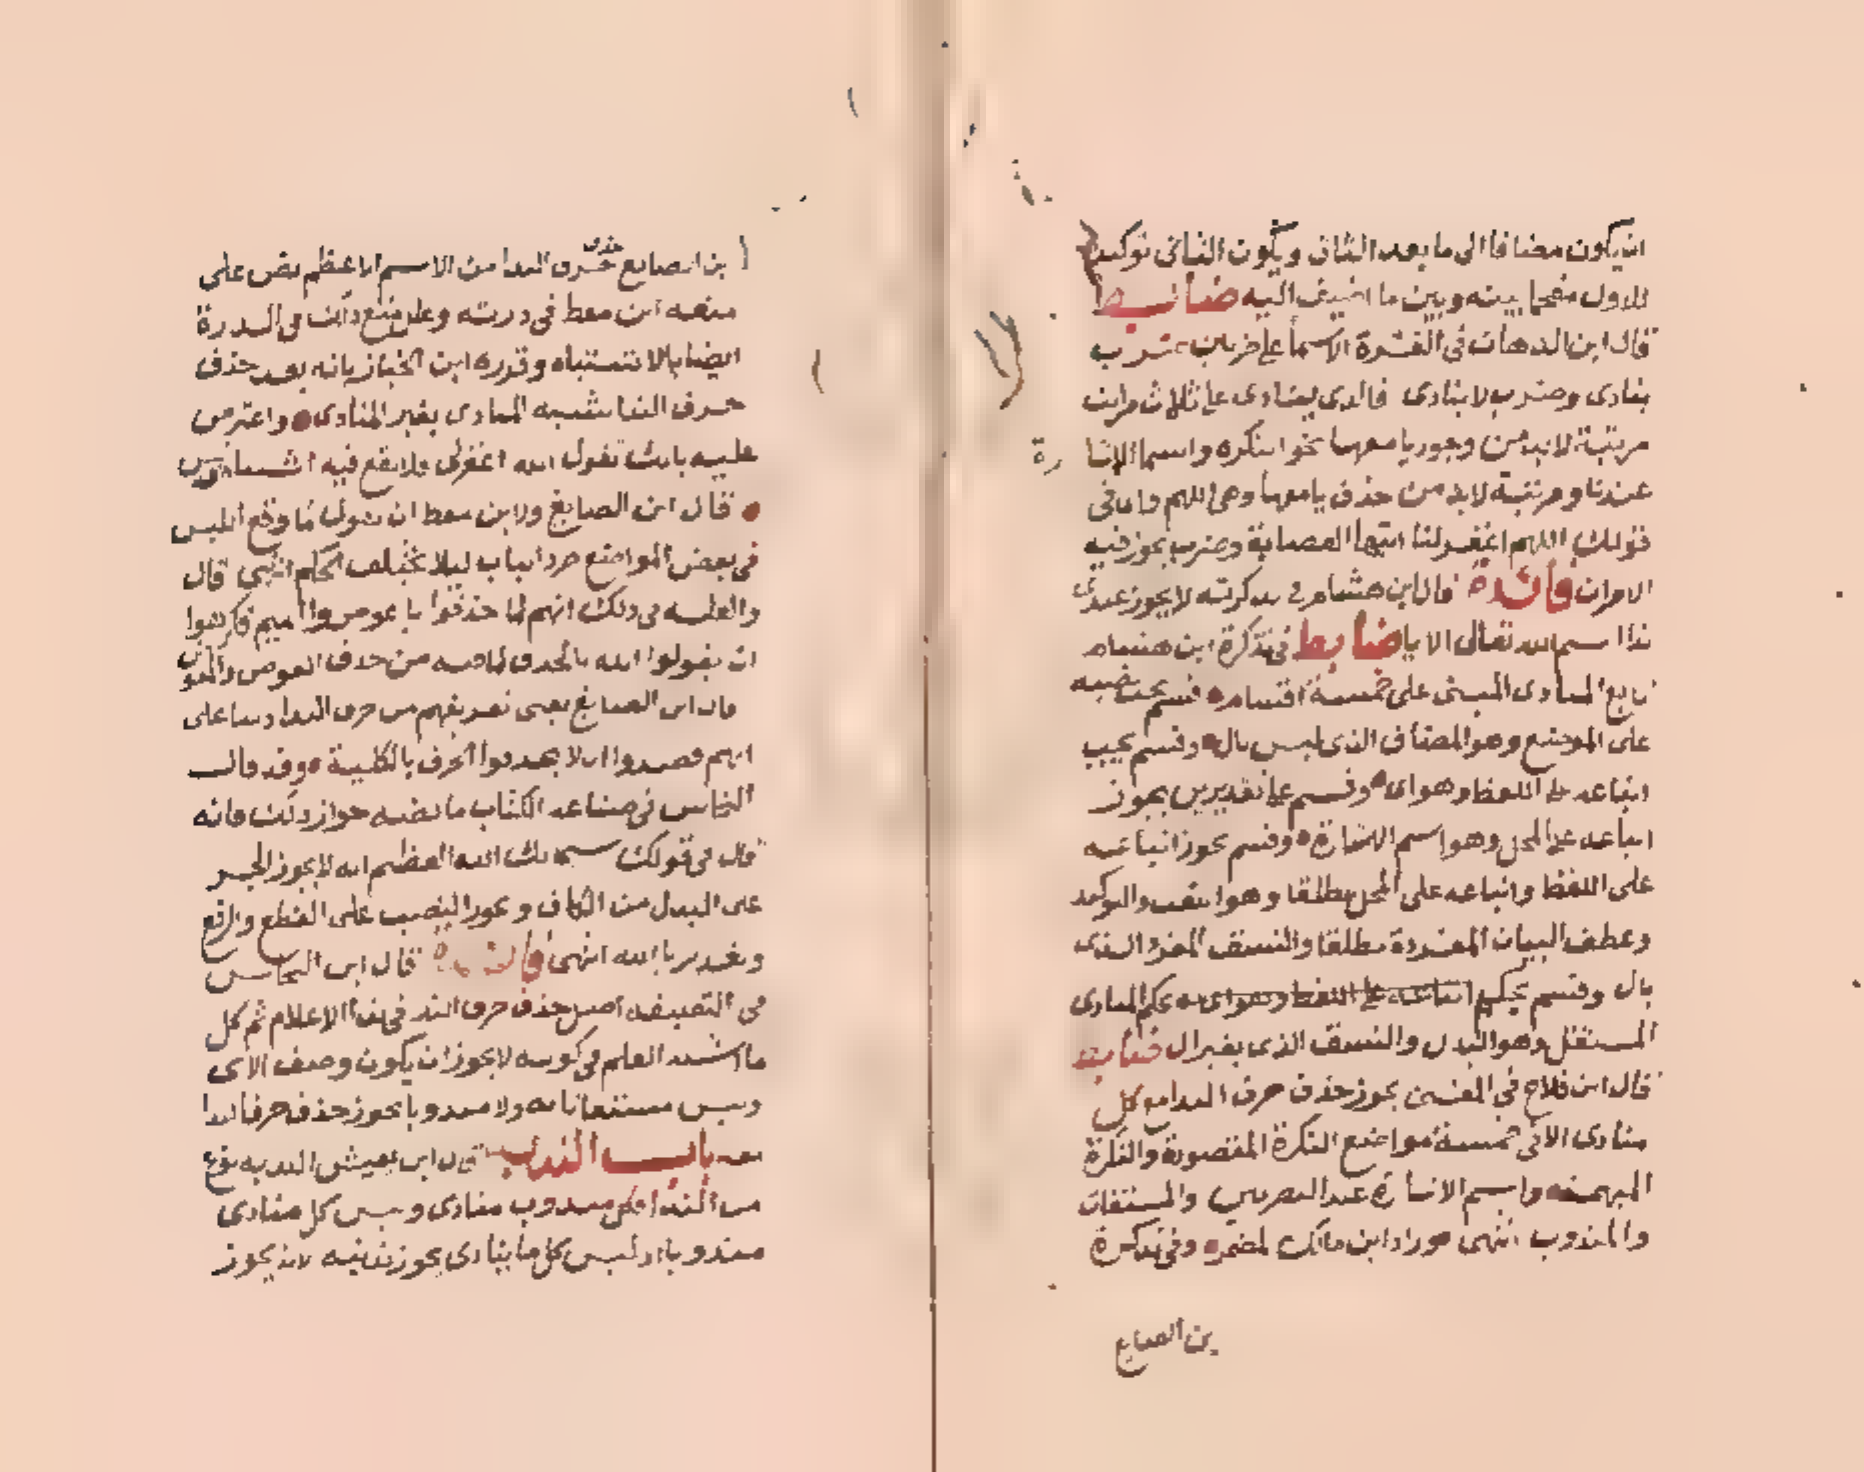 ان يكون مضافا الى ما بعد الثانى ويكون الثانى توكيدا
للاول مقحما بينه وبين ما اضيف اليه ضابط
قال ابن الدهان فى الغرة الاسما على ضربين ضرب
ينادى وضرب لا ينادى فالذى ينادى على ثلاث مراتب
مرتبة لابد من وجود يا معها نحو النكره واسما الاشا رة
عندنا ومرتبة لابد من حذف يا معها وهى اللهم واى فى
قولك اللهم اغفر لنا ايتها العصابة وضرب يجوز فيه
الامران فائدة قال ابن هشام فى تذكرته لا يجوز عندى
ندا اسم الله تعالى الا بيا ضابط فى تذكرة ابن هشام
تابع المنادى المبنى على خمسة اقسام قسم يجب نصبه
على الموضع وهو المضاف الذى ليس بال وقسم يجب
اتباعه على اللفظ وهو اى وقسم على تقديرين يجوز
اتباعه على المحل وهو اسم الاشارة وقسم يجوز اتباعه
على اللفظ واتباعه على المحل مطلقا وهو النعت والتوكيد
وعطف البيان المفردة مطلقا والنسق المفرد الذى
بال وقسم يحكم اتباعه على اللفظ وهو اى له بحكم المنادى
المستقل وهو البدل والنسق الذى بغير ال ضابط
قال ابن فلاح فى المغنى يجوز حذف حرف الندا مع كل
منادى الا فى خمسة مواضع النكرة المقصودة والنكرة
المبهمة واسم الاشارة عند البصريين والمستغاث
والمندوب انتهى وزاد ابن مالك المضمر وفى تذكرة
بن الصايغ
بن الصايغ حذف حرف الندا من الاسم الاعظم نص على
منعه ابن معط فى درته وعلل منع ذلك فى الدرة
ايضا بالاشتباه وقرره ابن الخباز بانه بعد حذف
حرف الندا يشبه المنادى بغير المنادى واعترض
عليه بانك تقول الله اغفر لى فلا يقع فيه
قال ابن الصايغ ولابن معط ان يقول لما وقع اللبس
فى بعض المواضع طرد الباب ليلا يختلف الحكم انتهى قال
والعلة فى ذلك انهم لما حذفوا يا عوضوا الميم فكرهوا
ان يقولوا الله بالحذف لما فيه من حذف العوض والمعوض
قال ابن الصايغ يعنى تعريفهم من حرف الندا دينا على
انهم قصدوا ان لا يحذفوا الحرف بالكلية وقد قال
النحاس فى صناعة الكتاب ما نصه جواز ذلك فانه
قال فى قولك سبحانك الله العظيم انه لا يجوز الجر
على البدل من الكاف ويجوز النصب على القطع والرفع
وتقديره يا الله انتهى فائدة قال ابن النحاس
فى التعليقة اصل حذف حرف الندا فى ندا الاعلام ثم كل
ما اشبه العلم فى كونه لا يجوز ان يكون وصف لاى
وليس مستغاثا به ولا مندوبا يجوز حذف حرف الندا
معه باب الندبة قال ابن يعيش الندبة نوع
من الندا فكل مندوب منادى وليس كل منادى
مندوبا اذ ليس كل ما ينادى يجوز ندبته لانه يجوز